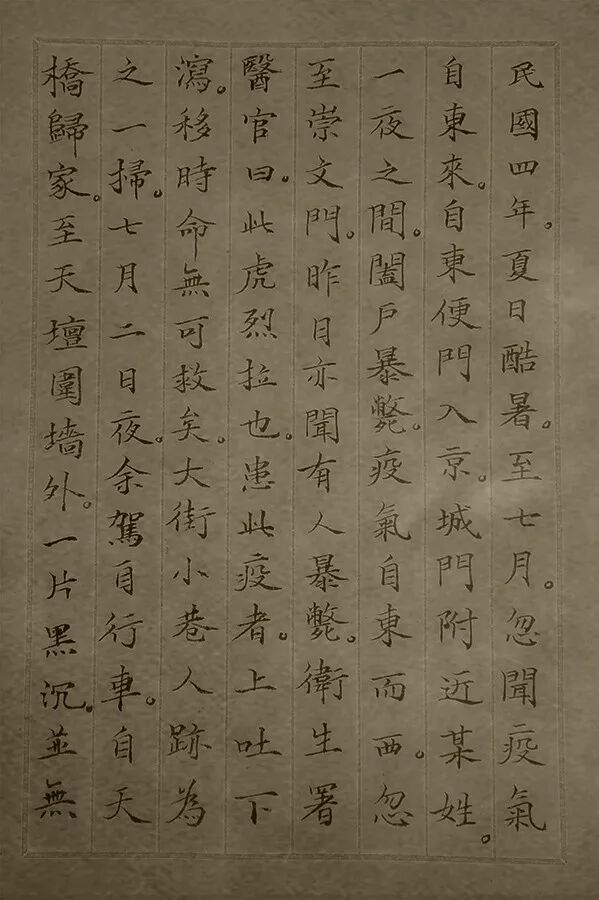 民國四年。夏日酷暑。至七月。忽聞疫氣
自東來。自東便門入京。城門附近某姓。
一夜之間。闔戶暴斃。疫氣自東而西。忽
至崇文門。昨日亦聞有人暴斃。衛生署
醫官曰。此虎烈拉也。患此疫者。上吐下
瀉。移時命無可救矣。大街小巷人跡為
之一掃。七月二日夜。余駕自行車。自天
橋歸家。至天壇圍墻外。一片黑沉。並無